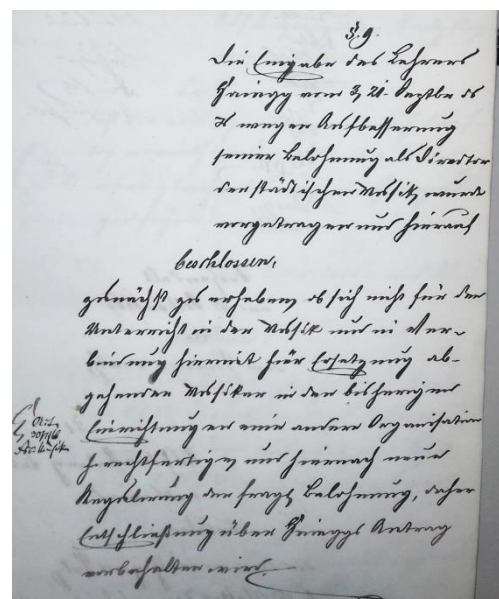 §. 9.
Die Eingabe des Lehrers
vom 3/21. Septbr ds
Js wegen Aufbesserung
seiner Belohnung als Director
der städtischen Musik, wurde
vorgetragen und hierauf
beschlossen,
zunächst zu erheben, ob sich nicht für den
Unterricht in der Musik und in Ver-
bindung hiermit für Ersetzung ab-
gehender Musiker in den bisherigen
Einrichtungen eine andere Organisation
rechtfertige, und hiernach neue
Regulirung der fragl. Belohnung, daher
Entschließung über Antrag
vorbehalten wird.